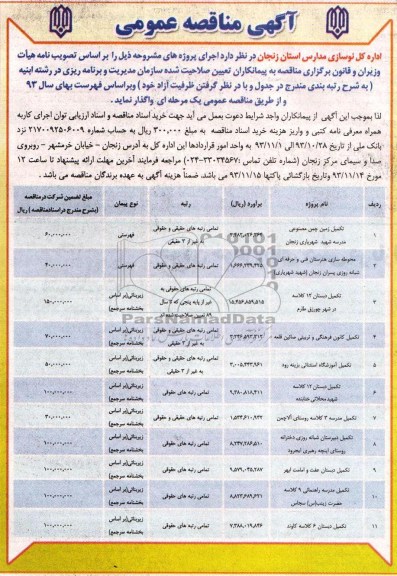 آگهی مناقصه عمومی
اداره کل نوسازی مدارس استان زنجان در نظر دارد اجرای پروژه های مشروحه ذیل را بر اساس تصویب نامه هیأت
وزیران و قانون برگزاری مناقصه به پیمانکاران تعیین صلاحیت شده سازمان مدیریت و برنامه ریزی در رشته ابنیه
( به شرح رتبه بندی مندرج در جدول و با در نظر گرفتن ظرفیت آزاد خود ) وبراساس فهرست بهای سال ۹۳
و از طریق مناقصه عمومی یک مرحله ای واگذار نماید .
لذا بموجب این آگهی از پیمانکاران واجد شرایط دعوت بعمل می آید جهت خرید اسناد مناقصه و اسناد ارزیابی توان اجرای کاربه
همراه معرفی نامه کتبی و واریز هزینه خرید اسناد مناقصه به مبلغ ۳۰۰/۰۰۰ ریال به حساب شماره ۲۱۷۰۰۹۲۵۰۶۰۰۹ نزد
بانک ملی از تاریخ ۹۳/۱۰/۲۸ الی ۹۳/۱۱/۱ به واحد امور قراردادها این اداره کل به آدرس زنجان – خیابان خرمشهر – روبروی
صدا و سیمای مرکز زنجان (شماره تلفن تماس ۳۳۰۳۴۵۶۷-۰۲۴) مراجعه فرمایند آخرین مهلت ارائه پیشنهاد تا ساعت ۱۲
مورخ ۹۳/۱۱/۱۴ وتاریخ بازگشائی پاکتها ۹۳/۱۱/۱۵ می باشد. ضمناً هزینه آگهی به عهده برندگان مناقصه می باشد .
ردیف نام پروژه برآورد (ریال) رتبه نوع پیمان مبلغ تضمین شرکت درمناقصه (بشرح مندرج دراسنادمناقصه ) ریال
۱ تکمیل زمین چمن مصنوعی مدرسه شهید شهریاری زنجان تمامی رتبه های حقیقی و حقوقی به غیر از ۳ حقیقی فهرستی ۶۰,۰۰۰,۰۰۰
۲ محوطه سازی هنرستان فنی و حرفه ای شبانه روزی پسران زنجان (شهید شهریاری) تمامی رتبه های حقیقی و حقوقی فهرستی ۴۰,۰۰۰,۰۰۰
۳ تکمیل دبستان ۱۲ کلاسه در شهر چورزق طارم ۱۵,۴۵۶,۸۵۹,۵۱۵ تمامی رتبه های حقوقی به غیر از پایه پنجی که تا سال ۸۹ تعیین صلاحیت شده اند زیربنائی(بر اساس بخشنامه سرجمع) ۱۵۰,۰۰۰,۰۰۰
۴ تکمیل کانون فرهنگی و تربیتی صائین قلعه تمامی رتبه های حقیقی و حقوقی به غیر از ۳ حقیقی زیربنائی(بر اساس بخشنامه سرجمع) ۷۰,۰۰۰,۰۰۰
۵ تکمیل آموزشگاه استثنائی بزینه رود ۳,۰۰۵,۴۴۳,۹۶۱ تمامی رتبه های حقیقی و حقوقی به غیر از ۳ حقیقی زیربنائی(بر اساس بخشنامه سرجمع) ۵۰,۰۰۰,۰۰۰
۶ تکمیل دبستان ۱۲ کلاسه شهید محلاتی خدابنده ۹,۲۸۰,۸۱۸,۴۱۱ تمامی رتبه های حقوقی زیربنائی(بر اساس بخشنامه سرجمع) ۱۰۰,۰۰۰,۰۰۰
۷ تکمیل مدرسه ۳ کلاسه روستای آلاچمن ۱,۵۴۴,۶۱۰,۹۴۲ تمامی رتبه های حقیقی و حقوقی زیربنائی(بر اساس بخشنامه سرجمع) ۳۰,۰۰۰,۰۰۰
۸ تکمیل دبیرستان شبانه روزی دخترانه روستای اینچه رهبری ایجرود ۸,۲۴۷,۲۸۶,۵۱۰ تمامی رتبه های حقوقی زیربنائی(بر اساس بخشنامه سرجمع) ۱۰۰,۰۰۰,۰۰۰
۹ تکمیل دبستان عفت و امامت ابهر ۹,۵۷۹,۰۴۵,۲۸۷ تمامی رتبه های حقوقی زیربنائی(بر اساس بخشنامه سرجمع) ۱۰۰,۰۰۰,۰۰۰
۱۰ تکمیل مدرسه راهنمائی ۹ کلاسه حضرت زینب(س) سجاس ۸,۸۲۳,۶۸۹,۶۳۱ تمامی رتبه های حقوقی زیربنائی(بر اساس بخشنامه سرجمع) ۱۰۰,۰۰۰,۰۰۰
۱۱ تکمیل دبستان ۶ کلاسه کاوند ۷,۳۸۸,۰۱۹,۸۴۶ تمامی رتبه های حقوقی زیربنائی(بر اساس بخشنامه سرجمع) ۱۰۰,۰۰۰,۰۰۰
ParsNamadData